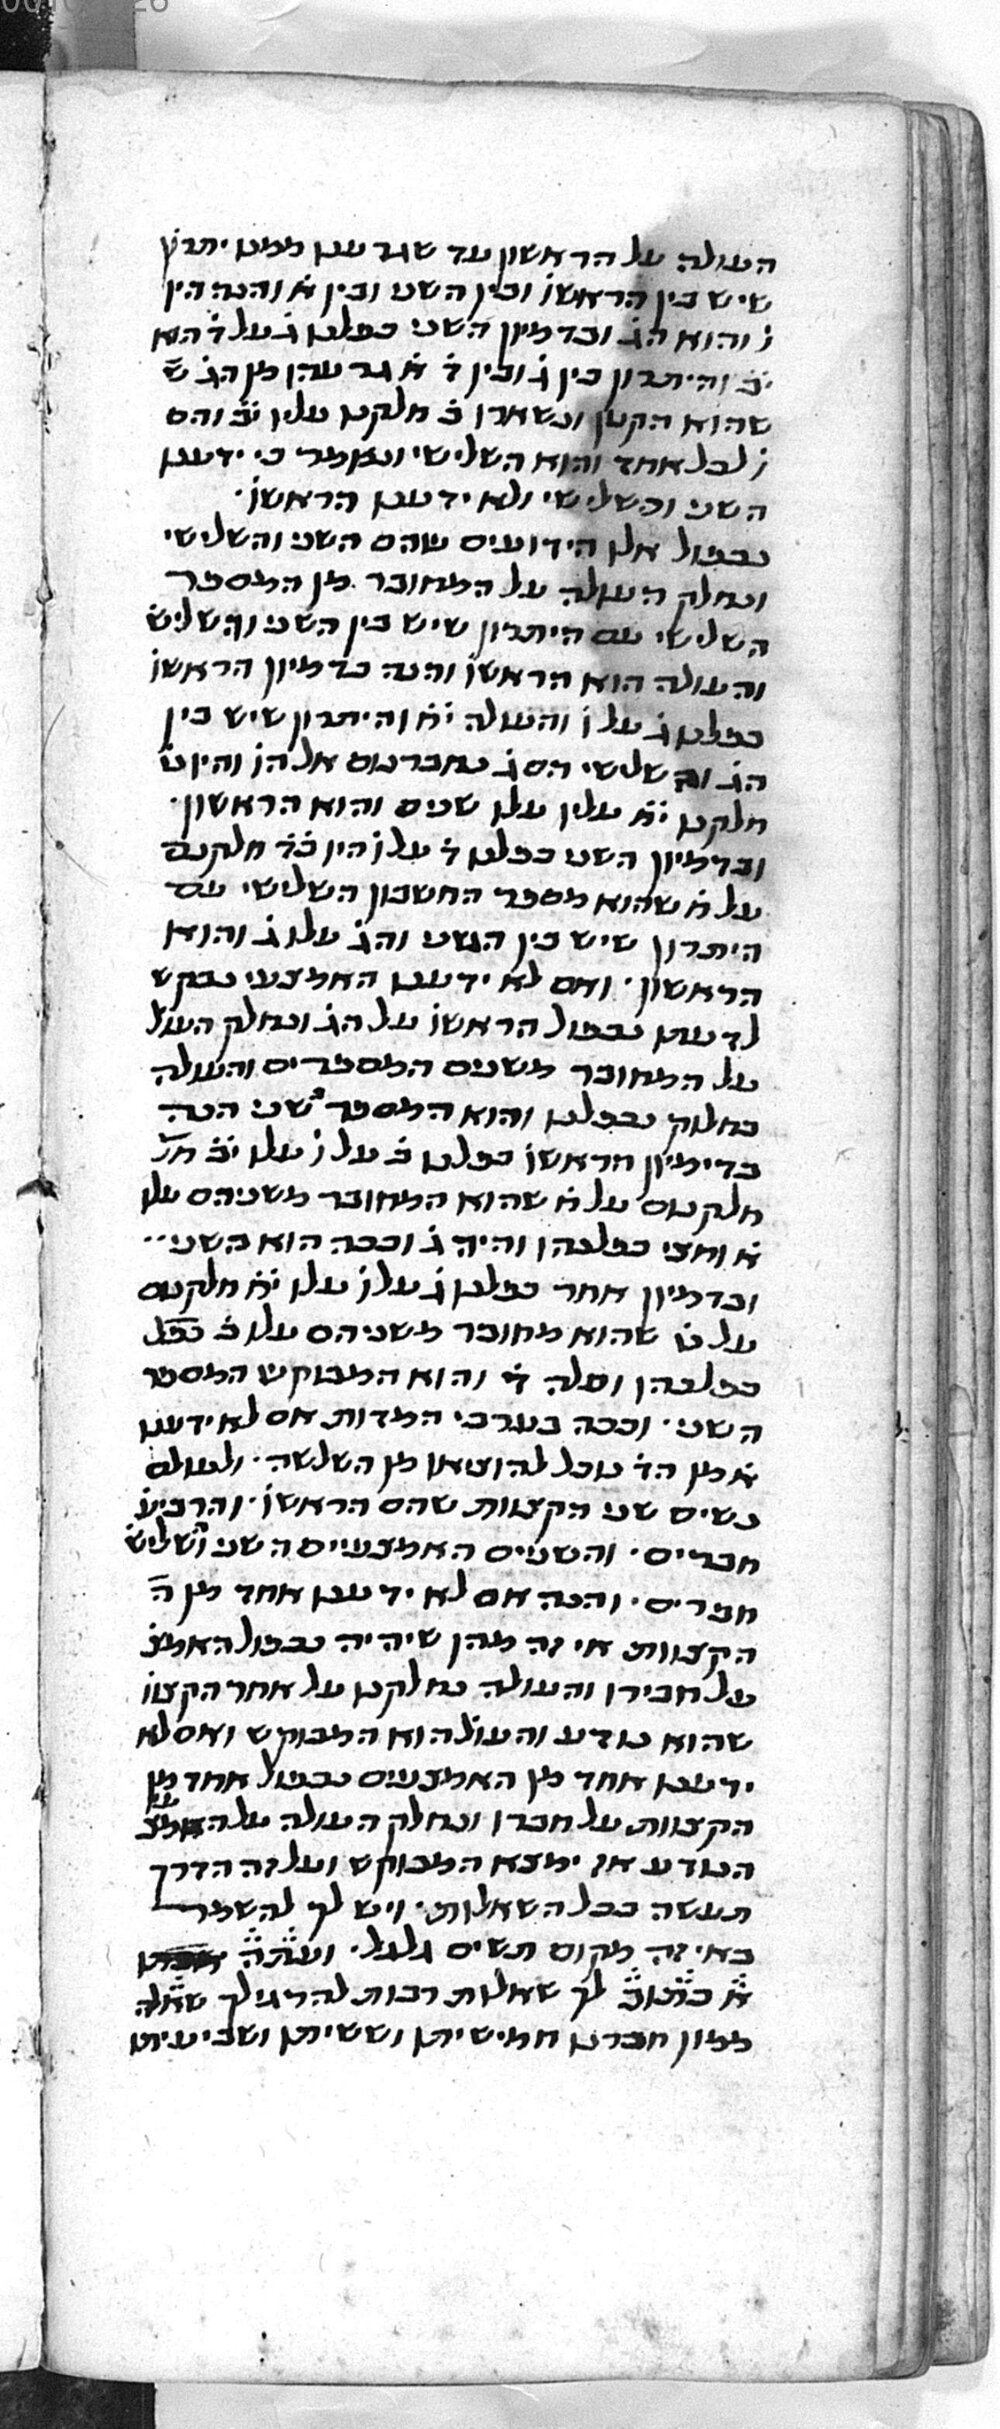 העולה על הראשון עד שגרענו ממנו יתרון
שיש בין הראשו ובין השני ובין א והנה הין
ו והוא הג ובדמיון השני כפלנו ג על ד הוא
יב והיתרון בין ג ובין ד א גרעהו מן הג ש
שהוא הקטן ונשארו ב חלקנו עליו יב והם
ו לכל אחד והוא השלישי ונאמר כי ידענו
השני והשלישי ולא ידענו הראשו
נכפול אלו הידועים שהם השני והשלישי
ונחלק העולה על המחובר מן המספר
השלישי עם היתרון שיש בין השני והשליש
והעולה הוא הראשו והנה בדמיון הראשו
כפלנו ג על ו והעולה יח והיתרון שיש בין
הג והשלישי הם ג נחברנום אל הו והיו ט
חלקנו יח עליו עלו שנים והוא הראשון
ובדמיון השני כפלנו ד על ו היו כד חלקנום
על ח שהוא מספר החשבון השלישי עם
היתרון שיש בין השני והג עלו ג והוא
הראשון ואם לא ידענו האמצעי נבקש
לדעתו נכפול הראשו על הג ונחלק העול
על המחובר משנים המספרים והעולה
בחלוק נכפלנו והוא המספר השני הנה
בדימיון הראשו כפלנו ב על ו עלו יב
חלקנום על ח שהוא המחובר משניהם עלו
א וחצי כפלנהו והיה ג וככה הוא השני
ובדמיון אחר כפלנו ג על ו עלו יח חלקנום
על ט שהוא מחובר משניהם עלו ב נכפל
כפלנהו ועלה ד והוא המבוקש המספר
השני וככה בערכי המדות אם לא ידענו
א מן הד נוכל להוציאו מן השלשה ולעולם
נשים שני הקצוות שהם הראשו והרביע
חברים והשנים האמצעיים השני והשליש
חברים והנה אם לא ידענו אחד מן ה
הקצוות אי זה מהן שיהיה נכפול האמצ
על חבירו והעולה נחלקנו על אחר הקצו
שהוא נודע והעולה הוא המבוקש ואם לא
ידענו אחד מן האמצעים נכפול אחד מן
הקצוות על חברו ונחלק העולה על האמצ
הנודע אז ימצא המבוקש ועל זה הדרך
תעשה בכל השאלות ויש לך להשמר
באי זה מקום תשים גלגל ועתה
א כתוב לך שאלות רבות להרגילך שאלה
ממון חברנו חמישיתו וששיתו ושביעיתו